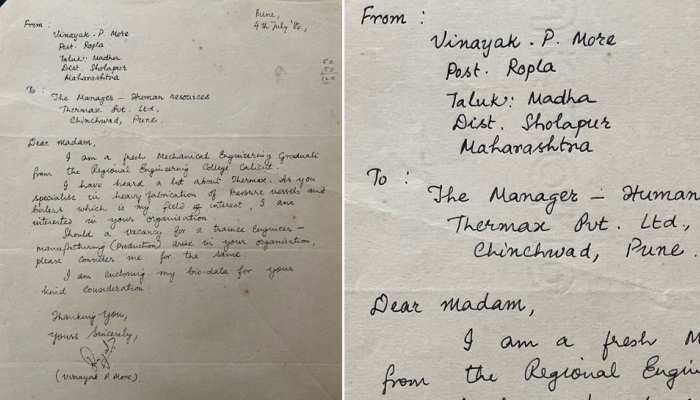 Pune,
4th July
From :
Vinayak . P. More
Post. Ropla
Taluk: Madha
Dist. Sholapur
Maharashtra
To :
The Manager – Human resources
Thermax Pvt. Ltd,
Chinchwad, Pune.
Dear Madam,
I am a fresh Mechanical Engineering Graduate
from the Regional Engineering College Calicut.
I have heard a lot about Thermax. As you
specialise in heavy fabrication of pressure vessels and
boilers which is my field of interest, I am
interested in your organisation.
Should a vacancy for a trainee Engineer –
manufacturing (Production) arise in your organisation,
please consider me for the same.
I am enclosing my bio-data for your
kind consideration
Thanking You,
Yours Sincerely,
(Vinayak P More)
From :
Vinayak . P. More
Post. Ropla
Taluk: Madha
Dist. Sholapur
Maharashtra
To :
The Manager – Human
Thermax Pvt. Ltd,
Chinchwad, Pune.
Dear Madam,
I am a fresh M
from the Regional Engin